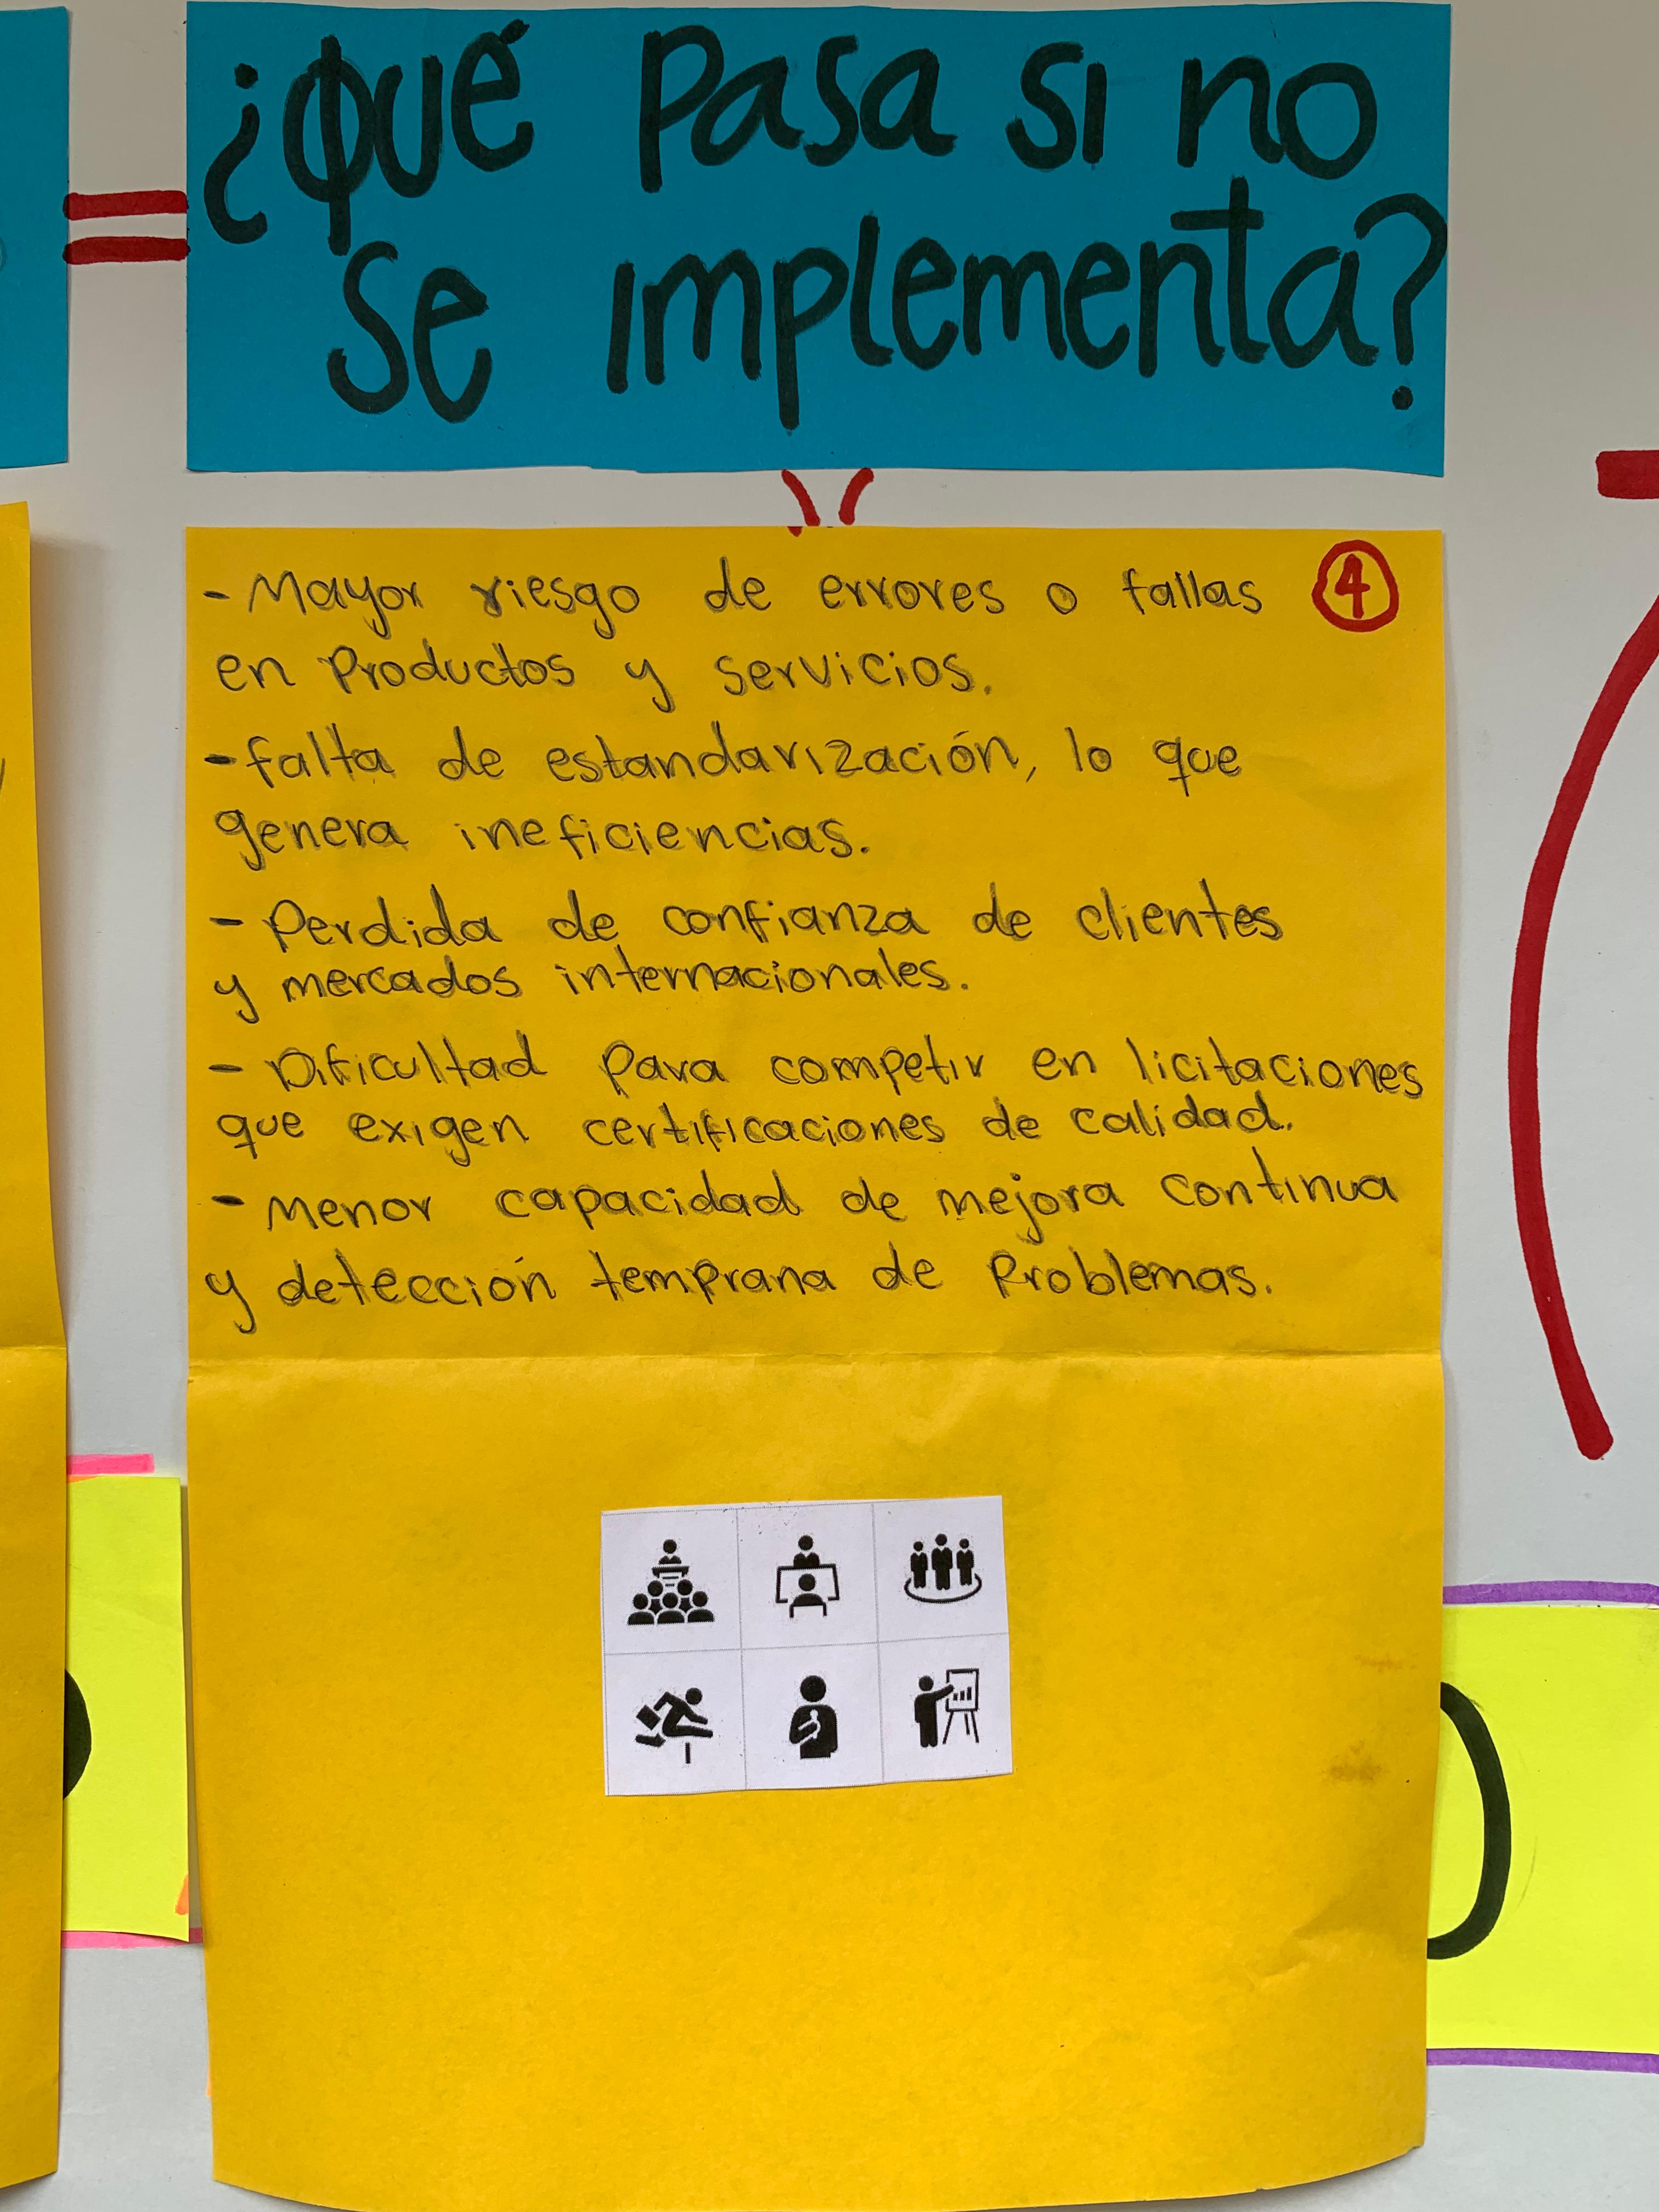 ¿Qué pasa si no
se implementa?
4
- Mayor riesgo de errores o fallas
en productos y servicios.
- falta de estandarización, lo que
genera ineficiencias.
- Perdida de confianza de clientes
y mercados internacionales.
- Dificultad para competir en licitaciones
que exigen certificaciones de calidad.
- Menor capacidad de mejora continua
y detección temprana de problemas.